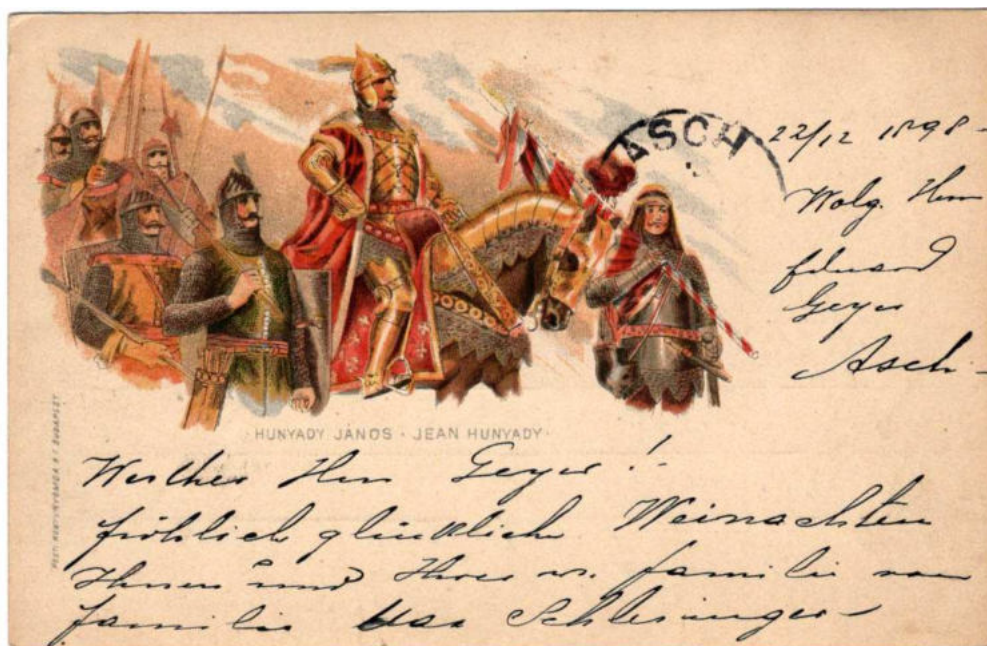 ASCH
22/12 1898 -
Wolg. Herrn
Eduard
Geyer
Asch -
· HUNYADY JÁNOS · JEAN HUNYADY ·
PESTI KÖNYVNYOMDA R.T. BUDAPEST
Werther Herr Geyer !
fröhlich glückliche Weinachten
Ihnen und Ihrer w. familie von
familie Max Schlesinger -